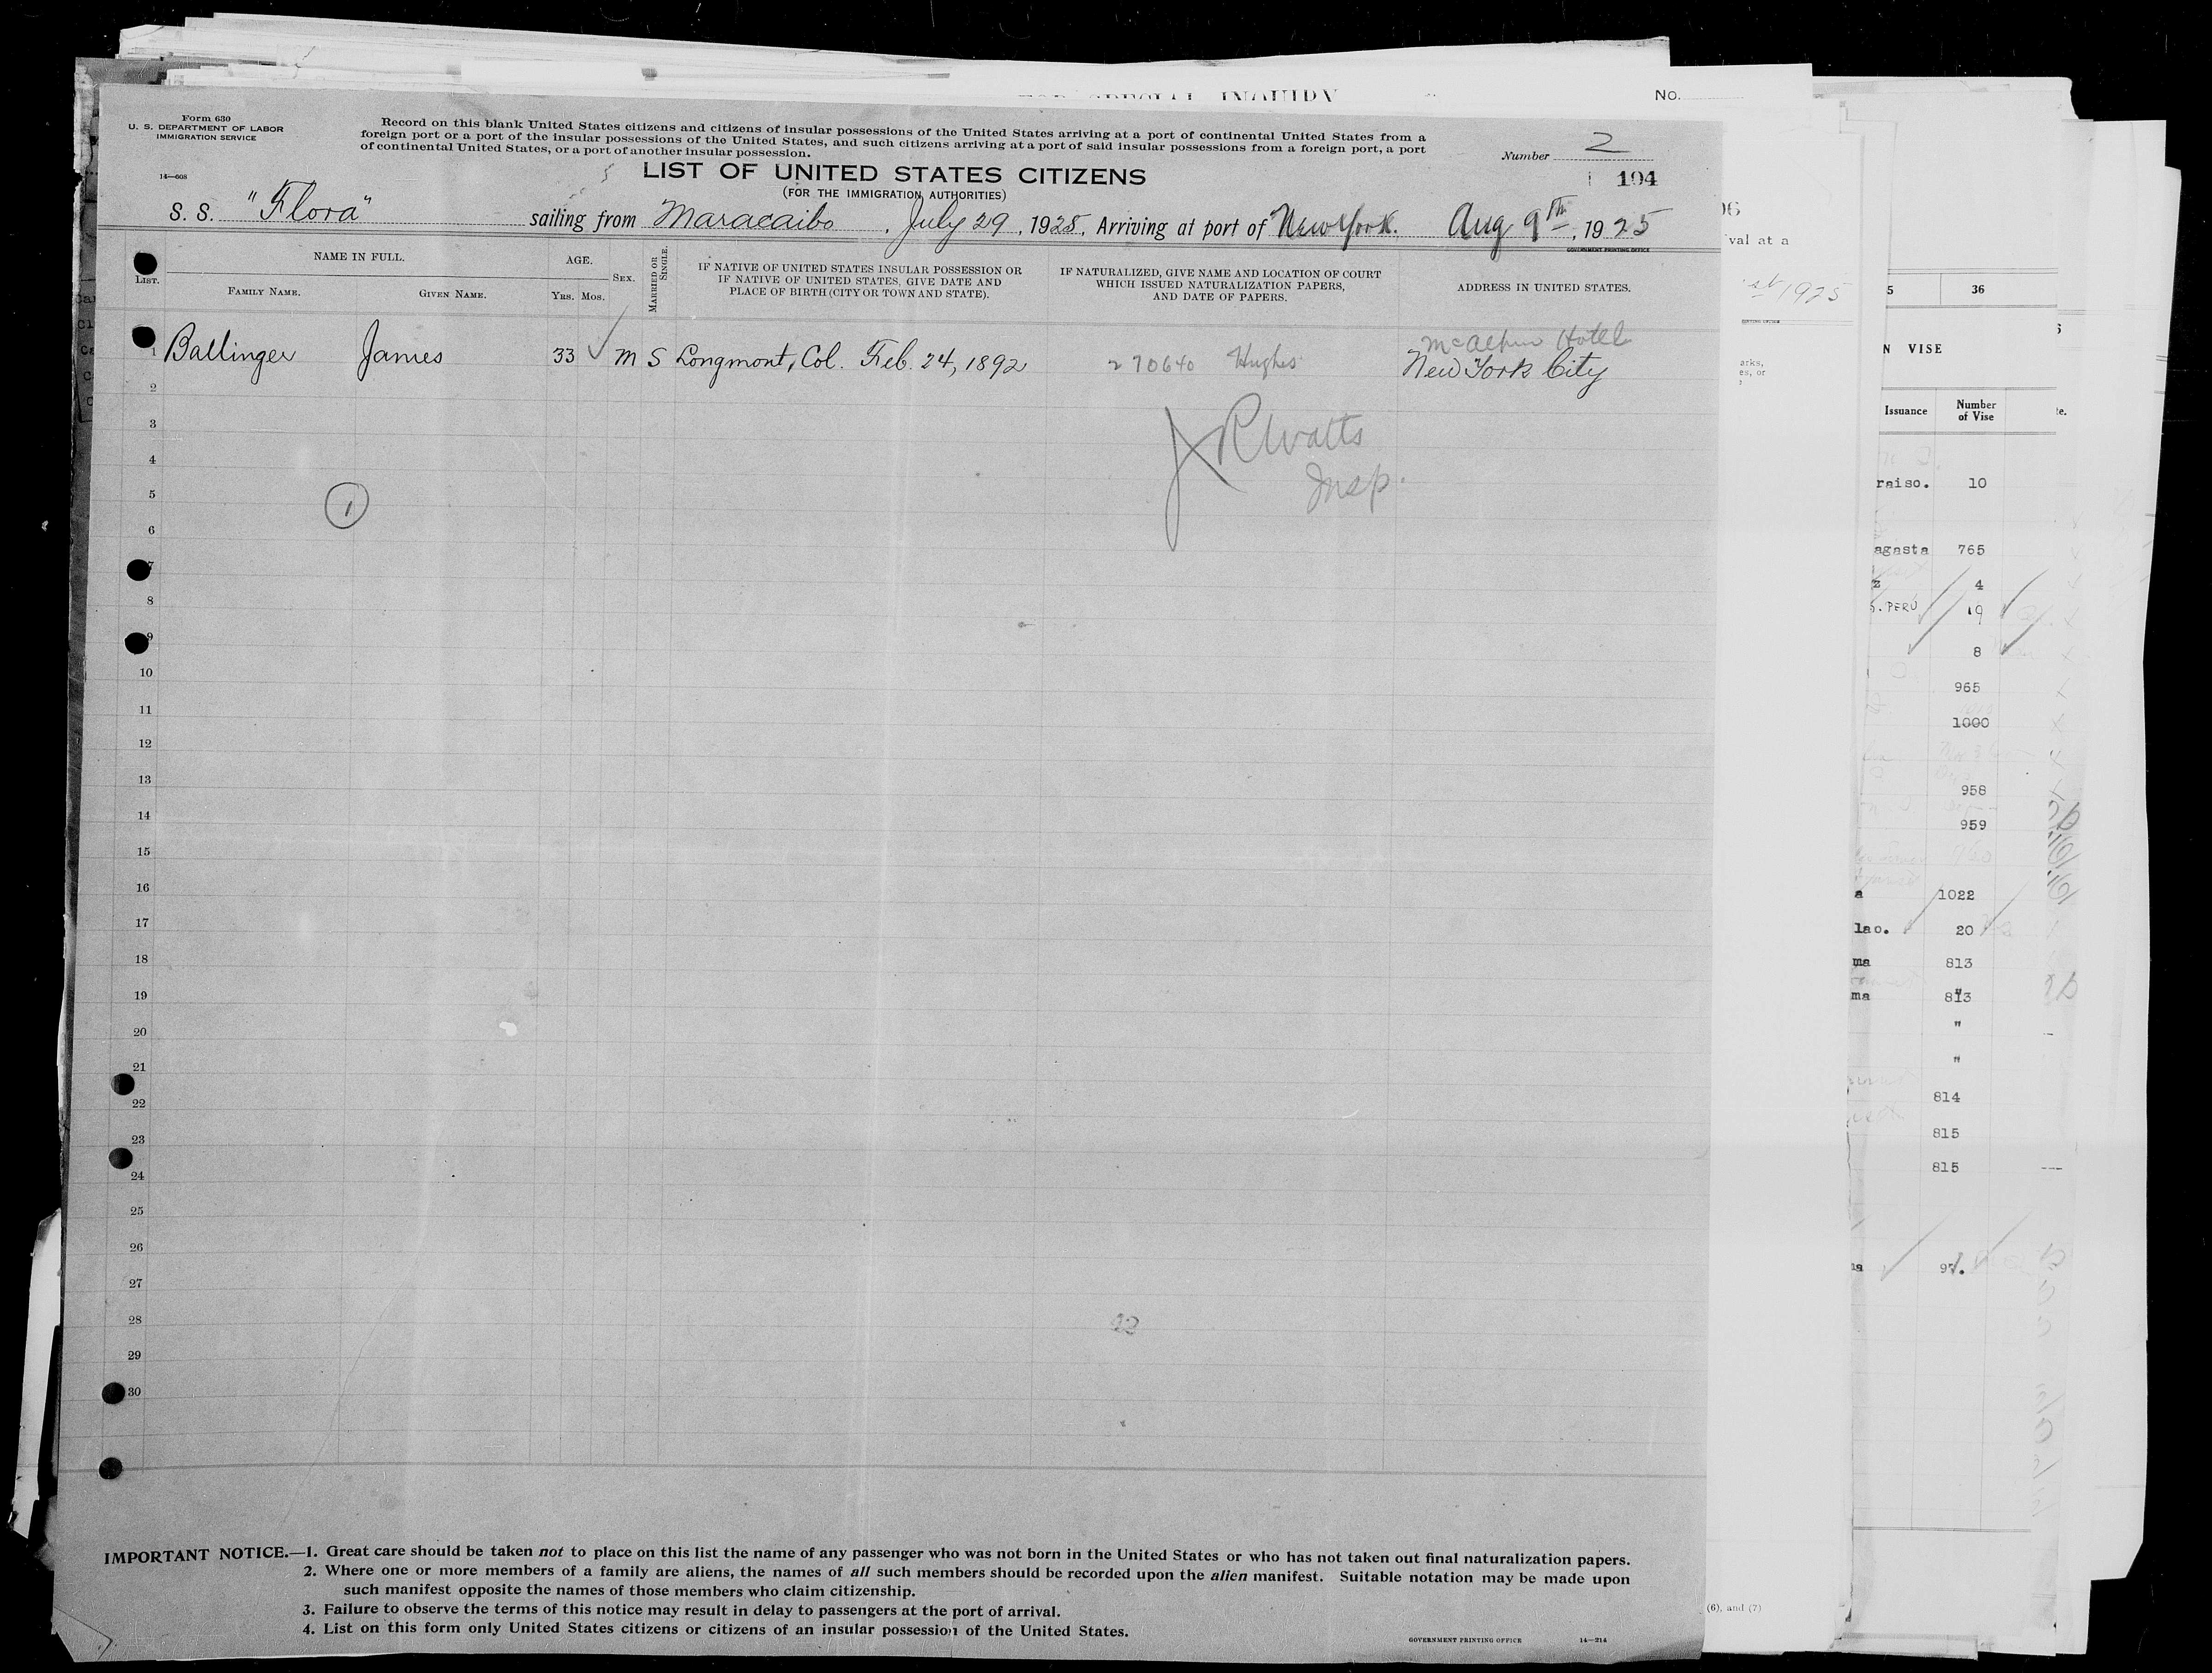 No.
Form 630
U. S. DEPARTMENT OF LABOR
IMMIGRATION SERVICE
14—608
Record on this blank United States citizens and citizens of insular possessions of the United States arriving at a port of continental United States from a
foreign port or a port of the insular possessions of the United States, and such citizens arriving at a port of said insular possessions from a foreign port, a port
of continental United States, or a port of another insular possession.
Number 2
LIST OF UNITED STATES CITIZENS
(FOR THE IMMIGRATION AUTHORITIES)
104
S. S. "Flora" sailing from Maracaibo, July 29, 1925, Arriving at port of New York. Aug 9th, 1925
GOVERNMENT PRINTING OFFICE
LIST.
NAME IN FULL.
FAMILY NAME.
GIVEN NAME.
AGE.
YRS. MOS.
SEX.
MARRIED OR SINGLE.
IF NATIVE OF UNITED STATES INSULAR POSSESSION OR
IF NATIVE OF UNITED STATES, GIVE DATE AND
PLACE OF BIRTH (CITY OR TOWN AND STATE).
IF NATURALIZED, GIVE NAME AND LOCATION OF COURT
WHICH ISSUED NATURALIZATION PAPERS,
AND DATE OF PAPERS.
ADDRESS IN UNITED STATES.
McAlpin Hotel
1 Ballinger James 33 M S Longmont, Col. Feb. 24, 1892 270640 Hughes New York City
2
3
J R Watts
4
Insp.
5
1
6
7
8
9
10
11
12
13
14
15
16
17
18
19
20
21
22
23
24
25
26
27
28
29
30
IMPORTANT NOTICE.—1. Great care should be taken not to place on this list the name of any passenger who was not born in the United States or who has not taken out final naturalization papers.
2. Where one or more members of a family are aliens, the names of all such members should be recorded upon the alien manifest. Suitable notation may be made upon
such manifest opposite the names of those members who claim citizenship.
3. Failure to observe the terms of this notice may result in delay to passengers at the port of arrival.
4. List on this form only United States citizens or citizens of an insular possession of the United States.
GOVERNMENT PRINTING OFFICE 14—214
val at a
1925
(6), and (7)
5 36
N VISE
Issuance
Number
of Vise
raiso. 10
agasta 765
4
S. PERU 19
8
965
1000
958
959
a 1022
lao. 20
ma 813
ma 813
"
"
"
814
815
815